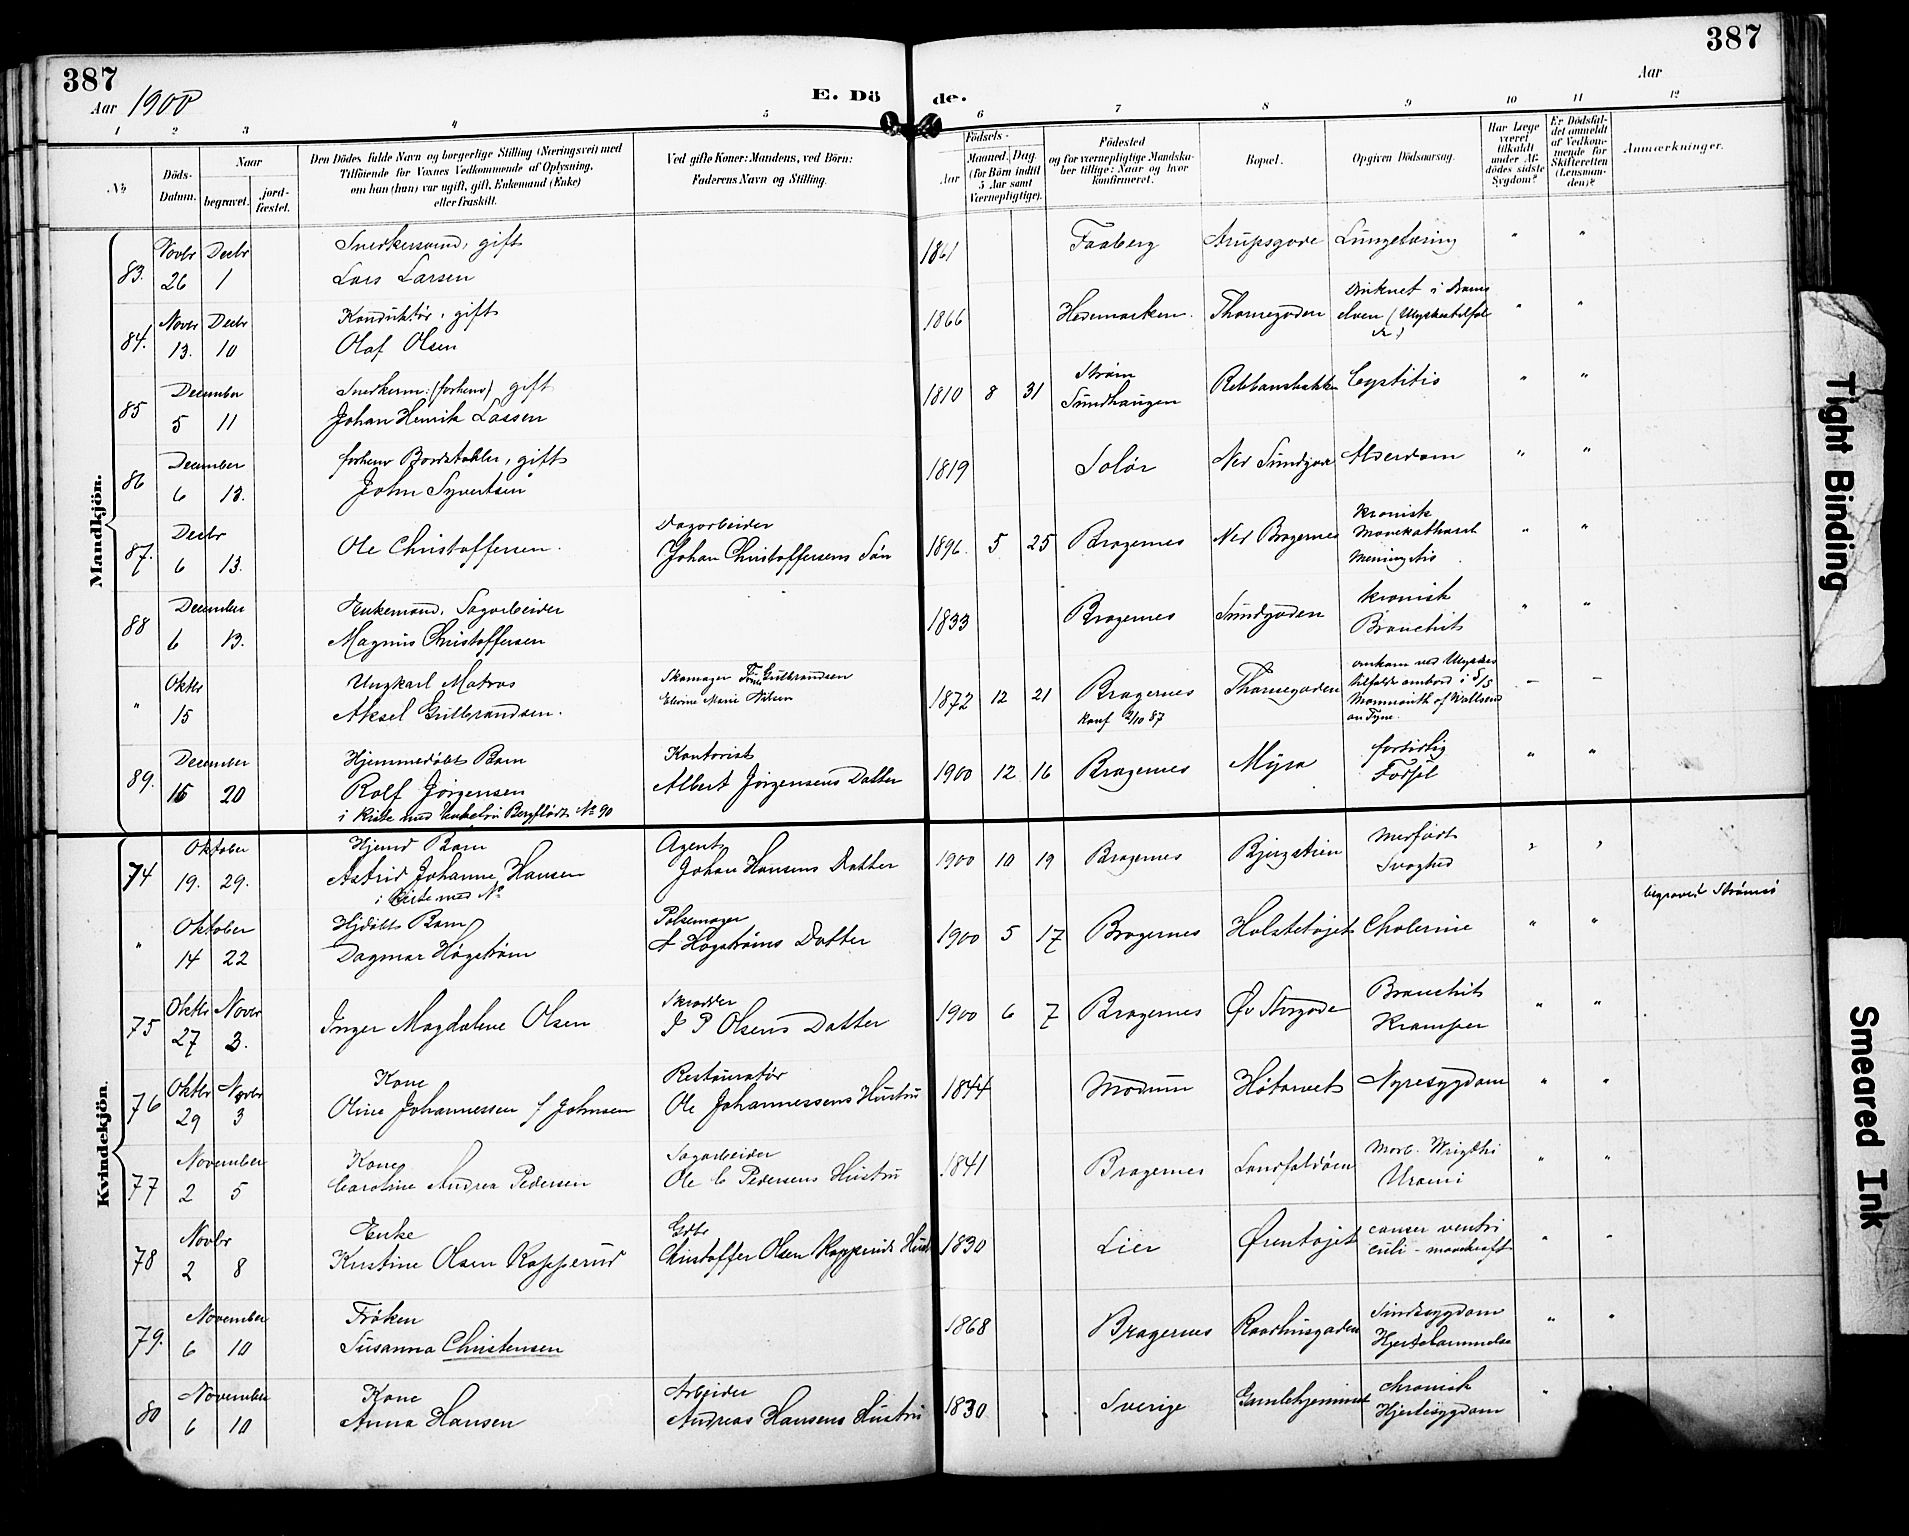 387
387
Aar 1900
E. Dö de.
Aar
1 2 3 4 5 6 7 8 9 10 11 12
No
Döds-
Datum.
Naar
begravet.
jord-
fæstet.
Den Dödes fulde Navn og borgerlige Stilling (Næringsvei) med
Tilföiende for Voxnes Vedkommende af Oplysning,
om han (hun) var ugift, gift, Enkemand (Enke)
eller fraskilt.
Ved gifte Koner: Mandens, ved Börn:
Faderens Navn og Stilling.
Födsels-
Aar
Maaned. Dag.
(for Börn indtil
5 Aar samt
Værnepligtige).
Födested
og for værnepligtige Mandska-
ber tillige: Naar og hvor
konfirmeret.
Bopæl.
Opgiven Dödsaarsag.
Har Læge
været
tilkaldt
under Af-
dödes sidste
Sygdom?
Er Dödsfal-
det anmeldt
af Vedkom-
mende for
Skifteretten
(Lensman-
den)?
Anmærkninger.
Mandkjön.
83. Novbr 26 Decbr 1
Snedkersvend, gift
Lars Larsen
1861 Faaberg Arupsgade Lungetæring " "
84. Novbr 13. Decbr 10
Konduktør, gift
Olaf Olsen
1866 Hedemarken. Thornegaden
Druknet i Drams
elven
" "
85 December 5 11
Snedkerm: (forhenv) gift
Johan Henrik Lassen
1810 8 31
Strøm
Sundhaugen
Cystitis " "
86 December 6 13.
forhenv Bordstabler, gift
John Syvertsen
1819 Solør Ned Sundgade Alderdom " "
87. Decbr 6 13.
Ole Christoffersen.
Dagarbeider
Johan Christoffersens Søn
1896. 5 25 Bragernes Ned Bragernes
kronisk
Mavekatharrh
Meningitis
" "
88 December 6 13.
Enkemand, Sagarbeider
Magnus Christoffersen
1833 Bragernes Sundgaden
kronisk
Bronchit
" "
" Oktbr 15
Ungkarl Matros
Aksel Gulbrandsen.
Skomager Gulbrandsen
Marie
1872 12 21 Bragernes
Konf 2/10 87
Thornegaden
omkom ved Ulykkes
tilfælde ombord i S/S
Monmouth of Wallsend
on Tyne.
– –
89. December 16 20
Hjemmedøbt Barn
Rolf Jørgensen
i Kiste med Bergflødt No 90
Kontorist
Albert Jørgensens Datter
1900 12 16 Bragernes Myra
fortidlig
Fødsel
" "
Kvindekjön.
74 Oktober 19. 29.
Hjemd Barn
Astrid Johanne Hansen
i Kiste med No
Agent
Johan Hansens Datter
1900 10 19 Bragernes Bjergstien
Medfødt
Svaghed
" "
" Oktober 14 22
Hjdøbt Barn
Dagmar Høgstrøm
Pølsemager
A Høgstrøms Datter
1900 5 17 Bragernes Holstetøjet Cholerine " "
begravet Strømsø
75 Oktbr 27 Novbr 3.
Inger Magdalene Olsen
Skrædder
I P Olsens Datter
1900 6 7 Bragernes Øv Storgade
Bronchit
Kramper
" "
76 Oktbr 29 Novbr 3
Kone
Oline Johannessen f Johnsen
Restauratør
Ole Johannessens Hustru
1844 Modum Høtorvet Nyresygdom " "
77 November 2 5
Kone
Caroline Andrea Pedersen
Sagarbeider
Ole C Pedersens Hustru
1841 Bragernes Landfaldøen
Morb. Brigthi
Uræmi
" "
78 Novbr 2 8
Enke
Kirstine Olsen Kopperud
Gdbr
Christoffer Olsen Kopperuds Hust
1830 Lier Ørentøjet
cancer ventri
culi - mavekræft
" "
79. November 6 10
Frøken
Susanna Christensen
1868 Bragernes Raadhusgaden
Sindssygdom
Hjertelammelse
" "
80 November 6 10
Kone
Anna Hansen
Arbeider
Andreas Hansens Hustru
1830 Sverige Gamlehjemmet
chronisk
Hjertesygdom
"
Tight Binding
Smeared Ink